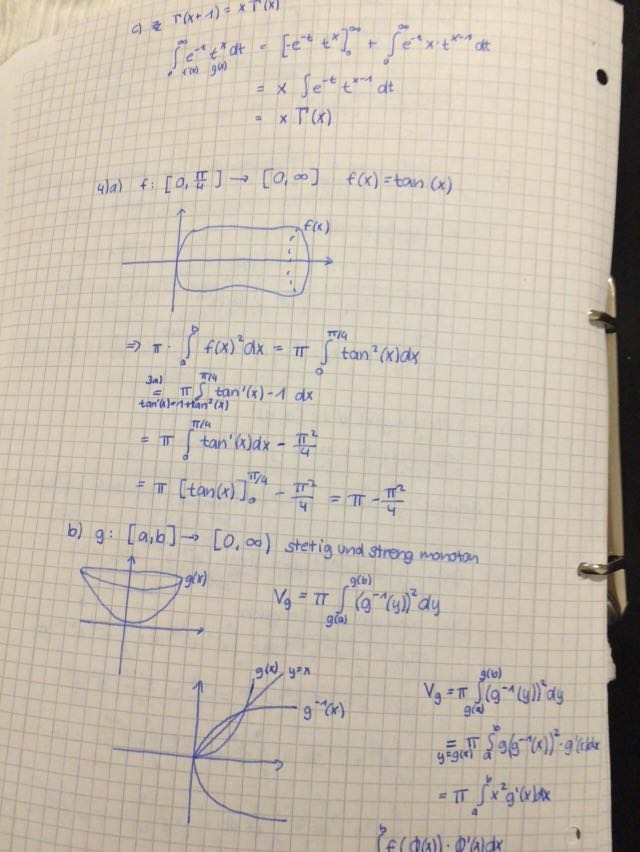 c) Γ(x+1) = x Γ(x)
∫₀^∞ e^{-t} t^x dt = [-e^{-t} t^x]₀^∞ + ∫₀^∞ e^{-t} x · t^{x-1} dt
f'(x) g(x)
= x ∫ e^{-t} t^{x-1} dt
= x Γ(x)
4)a) f: [0, π/4] → [0, ∞] f(x) = tan(x)
f(x)
⇒ π · ∫_a^b f(x)² dx = π ∫₀^{π/4} tan²(x) dx
3a)
= π ∫₀^{π/4} tan'(x) - 1 dx
tan'(x) = 1 + tan²(x)
= π ∫₀^{π/4} tan'(x) dx - π²/4
= π [tan(x)]₀^{π/4} - π²/4 = π - π²/4
b) g: [a,b] → [0, ∞) stetig und streng monoton
g(x)
V_g = π ∫_{g(a)}^{g(b)} (g^{-1}(y))² dy
g(x) y=x
g^{-1}(x)
V_g = π ∫_{g(a)}^{g(b)} (g^{-1}(y))² dy
= π ∫_a^b g(g^{-1}(x))² · g'(x) dx
y=g(x)
= π ∫_a^b x² g'(x) dx
∫^b f(ϕ(x)) · ϕ'(x) dx